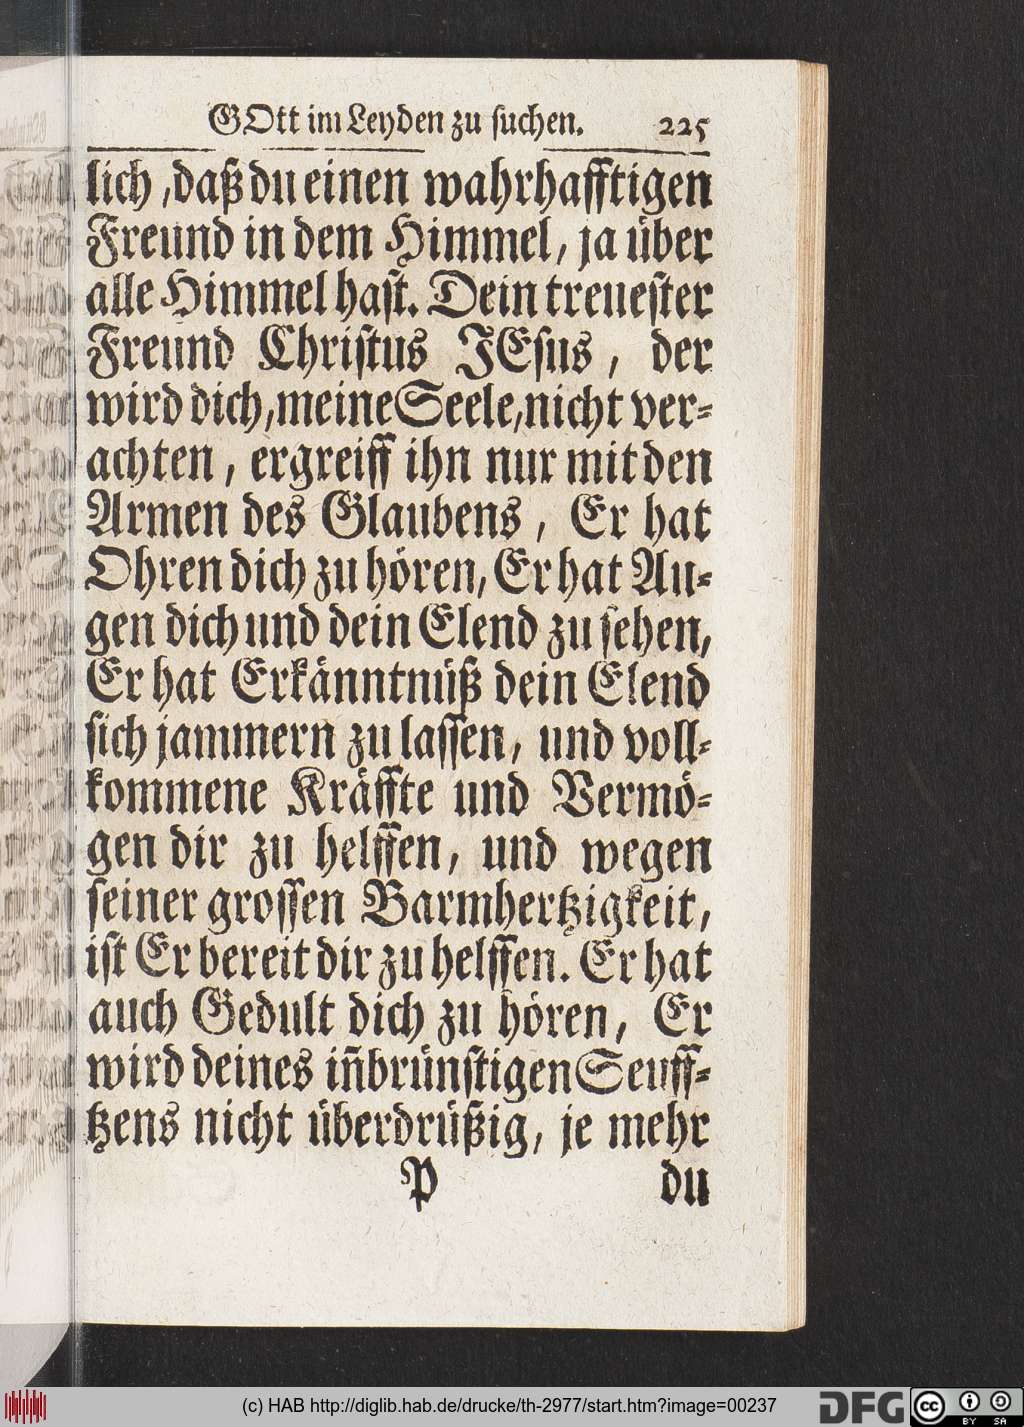 GOtt im Leyden zu suchen. 225
lich, daß du einen wahrhafftigen
Freund in dem Himmel, ja über
alle Himmel hast. Dein treuester
Freund Christus JEsus, der
wird dich, meine Seele, nicht ver-
achten, ergreiff ihn nur mit den
Armen des Glaubens, Er hat
Ohren dich zu hören, Er hat Au-
gen dich und dein Elend zu sehen,
Er hat Erkänntnüß dein Elend
sich jammern zu lassen, und voll-
kommene Kräffte und Vermö-
gen dir zu helffen, und wegen
seiner grossen Barmhertzigkeit,
ist Er bereit dir zu helffen. Er hat
auch Gedult dich zu hören, Er
wird deines iñbrünstigen Seuff-
tzens nicht überdrüßig, je mehr
P du
(c) HAB http://diglib.hab.de/drucke/th-2977/start.htm?image=00237
DFG
cc BY SA